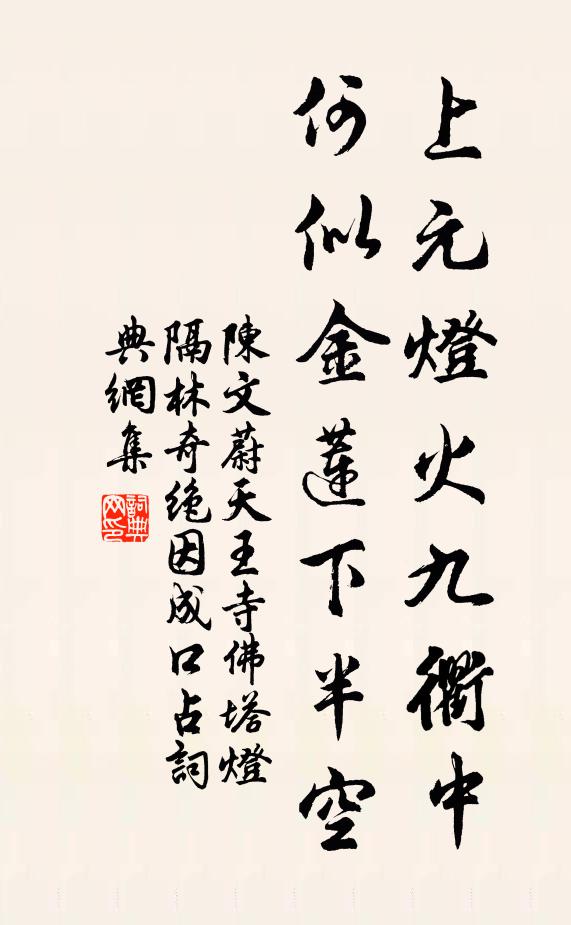 上元燈火九衢中
何似金蓮下半空
陳文蔚天王寺佛塔燈
隔林奇绝因成口占詞
典網集
詞典網印